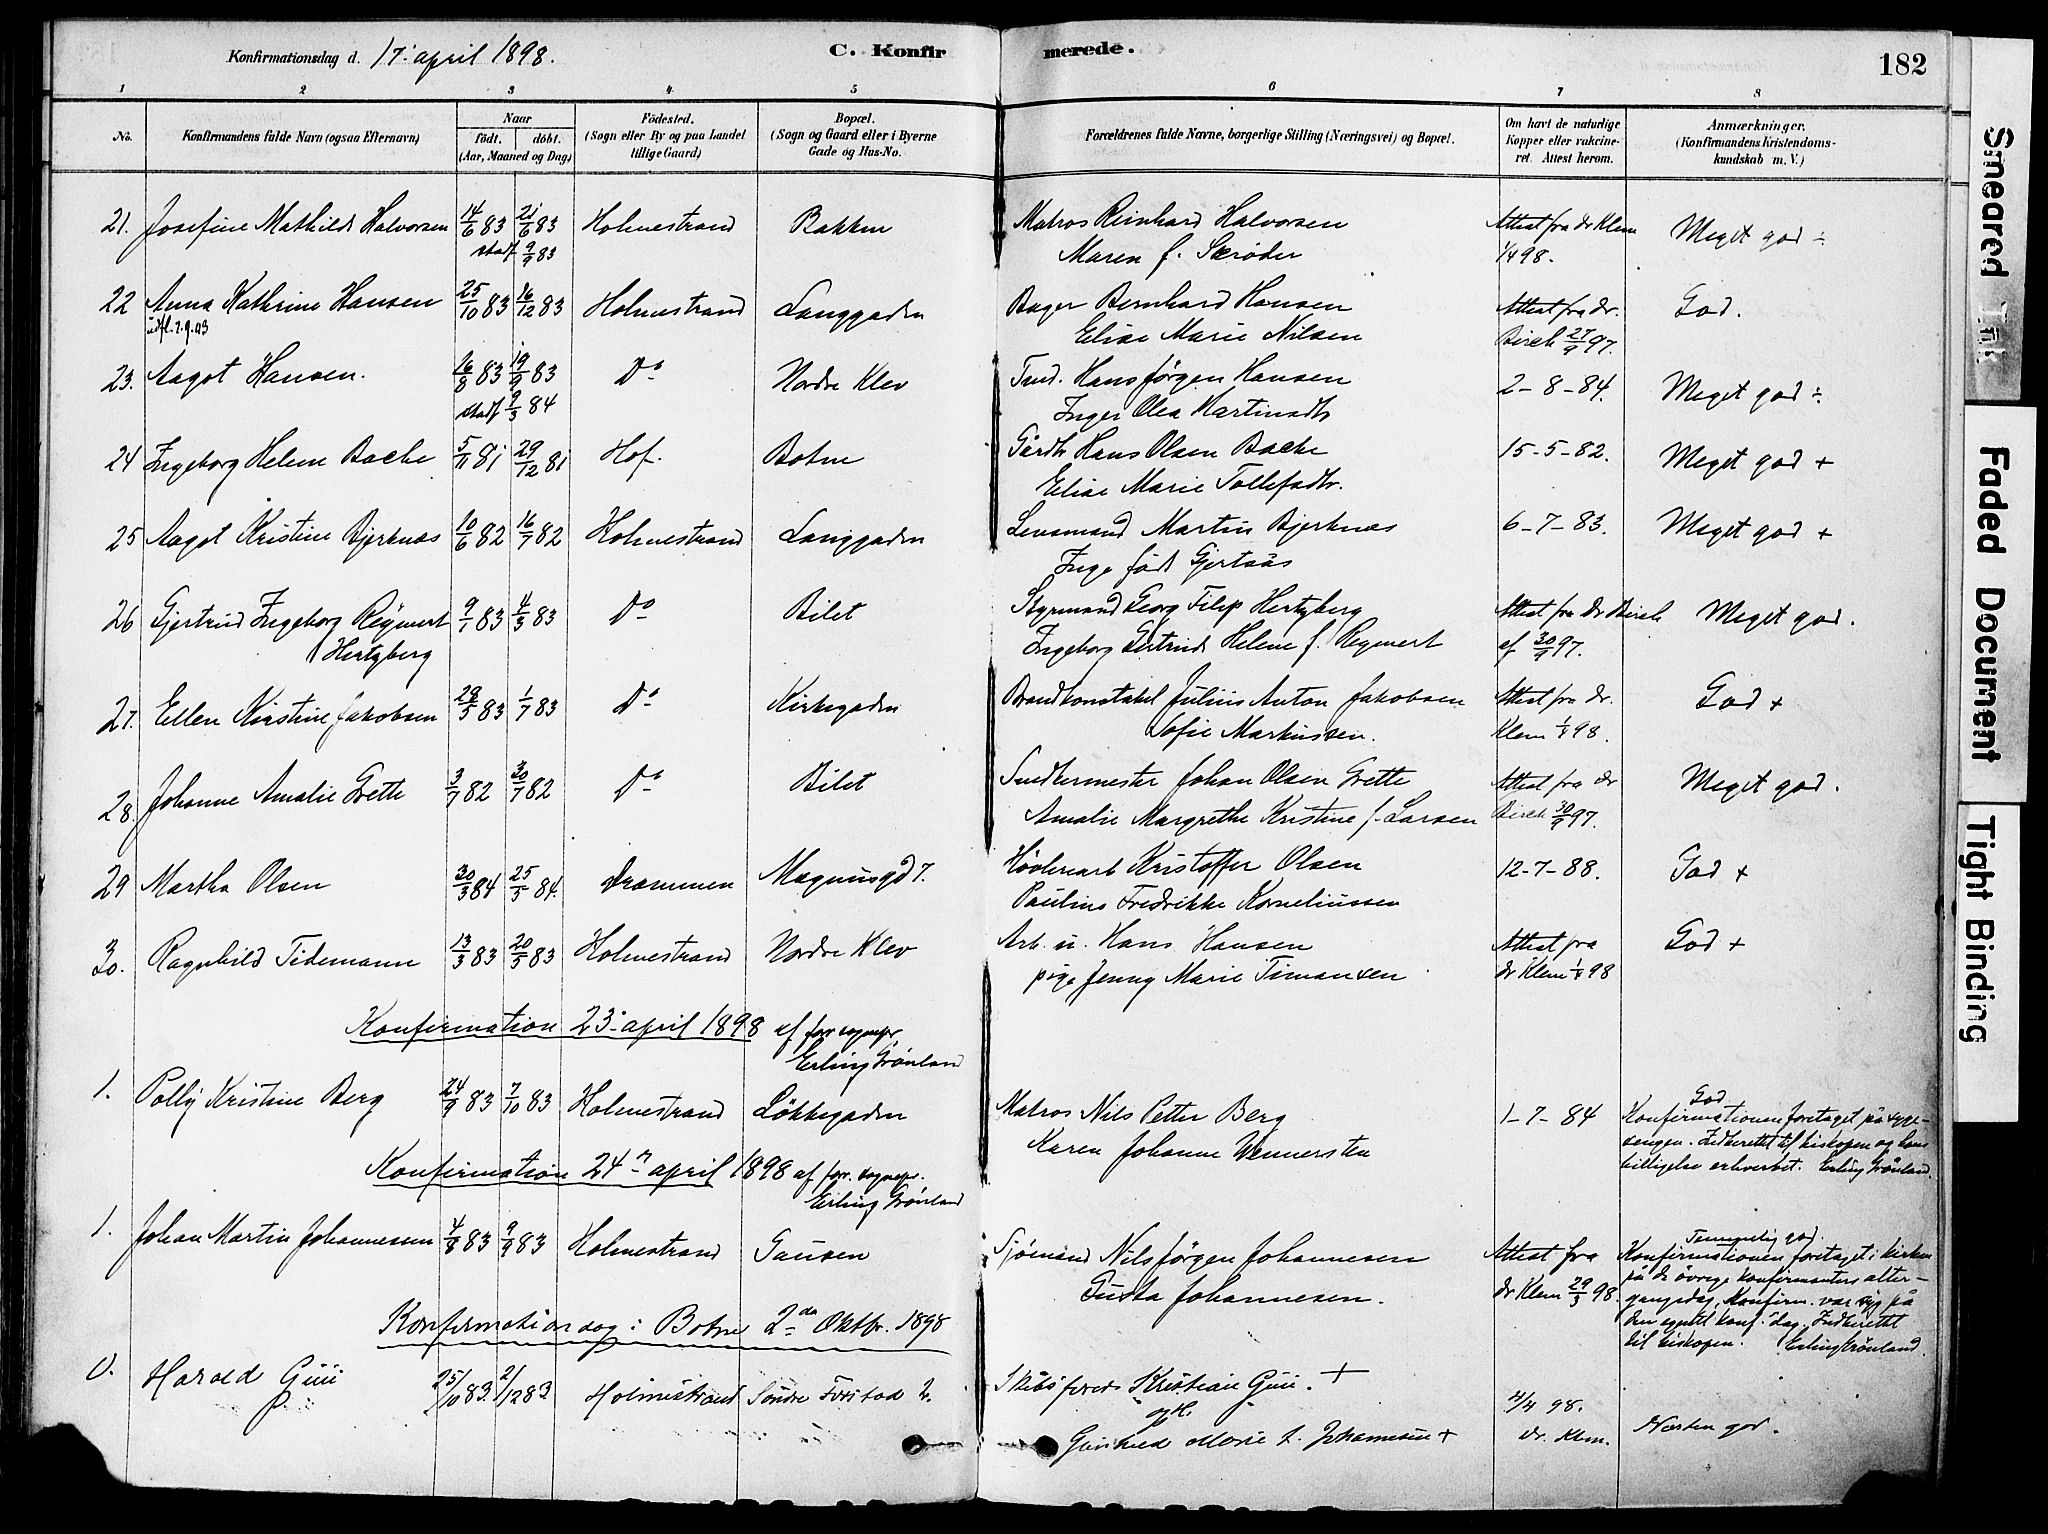 Konfirmationsdag d. 17. april 1898.
C. Konfirmerede.
182
1 2 3 4 5 6 7 8
No.
Konfirmandens fulde Navn (ogsaa Efternavn)
Naar
født. døbt.
(Aar, Maaned og Dag)
Fødested.
(Sogn eller By og paa Landet
tillige Gaard)
Bopæl.
(Sogn og Gaard eller i Byerne
Gade og Hus-No.
Forældrenes fulde Navne, borgerlige Stilling (Næringsvei) og Bopæl.
Om havt de naturlige
Kopper eller vakcine-
ret. Attest herom.
Anmærkninger.
(Konfirmandens Kristendoms-
kundskab m. V.)
21. Josefine Mathilde Halvorsen 14/6 83 21/6 83 Holmestrand Bakken Matros Reinhard Halvorsen Attest fra dr Klem Meget god ÷
stadf 9/9 83 Maren f. Skrøder 1/4 98.
22 Anna Kathrine Hansen 25/10 83 16/12 83 Holmestrand Langgaden Bager Bernhard Hansen Attest fra dr. God.
udfl. 7.9.43 Elise Marie Nilsen Birch 27/9 97.
23. Aagot Hansen. 16/8 83 19/9 83 Do Nordre Klev Tmd. Hans Jörgen Hansen 2-8-84. Meget god ÷
stadf 9/3 84 Inger Olea Martinsdtr
24 Ingeborg Helene Bache 5/11 81 29/12 81 Hof. Botne Gårdbr Hans Olsen Bache 15-5-82. Meget god +
Elise Marie Tollefsdtr.
25 Aagot Kristine Bjerknæs 10/6 82 16/7 82 Holmestrand Langgaden Lensmand Martin Bjerknæs 6-7-83. Meget god +
Inga född Gjertsås
26 Gjertrud Ingeborg Regnert 9/1 83 4/3 83 Do Bilet Styrmand Georg Filip Hertzberg Attest fra dr Birch Meget god.
Hertzberg Ingeborg Gertrude Helene f. Regnert af 30/9 97.
27. Ellen Kirstine Jakobsen 29/5 83 1/7 83 Do Kirkegaden Brandkonstabel Julius Anton Jakobsen Attest fra dr. God +
Sofie Markussen. Klem 1/4 98.
28. Johanne Amalie Grette 3/7 82 30/7 82 Do Bilet Snedkermester Johan Olsen Grette Attest fra dr Meget god.
Amalie Margrethe Kristine f. Larsen Birch 30/9 97.
29 Martha Olsen 30/3 84 25/5 84. Drammen Magnusgd 7. Høvlerearb Kristoffer Olsen 12-7-88. God +
Pauline Fredrikke Korneliussen
30. Ragnhild Tidemann 13/3 83 20/5 83 Holmestrand Nordre Klev Arb. u. Hans Hansen Attest fra God +
pige Jenny Marie Timansen dr Klem 1/4 98
Konfirmation 23. april 1898 af forr. sognepr.
Erling Grönland
1. Polly Kristine Berg 24/9 83 7/10 83 Holmestrand Lökkegaden Matros Nils Petter Berg 1-7-84 God
Karen Johanne Wennersten
Konfirmationen foretaget på syge-
sengen. Indberettet til biskopen og hans
billigelse erhvervet. Erling Grönland.
Konfirmation 24n april 1898 af forr. sognepr.
Erling Grönland
1. Johan Martin Johannessen 4/8 83 9/9 83 Holmestrand Gausen Sjømand Nils Jörgen Johannesen Attest fra Temmelig god.
Gusta Johannesen. dr Klem 29/3 98.
Konfirmationen foretaget i kirken
på de övrige konfirmanters alter-
gangsdag. Konfirm. var syg på
den egentl konf. dag. Indberettet
til biskopen. Erling Grönland.
Konfirmationsdag i Botne 2den Oktbr. 1898
Harald Guii 25/10 83 2/12 83 Holmestrand Söndre Kristian Guii. + 4/4 98. Næsten god.
og H.
Gunhild Marie f. Johannesen + dr. Klem.
Smeared Ink
Faded Document
Tight Binding